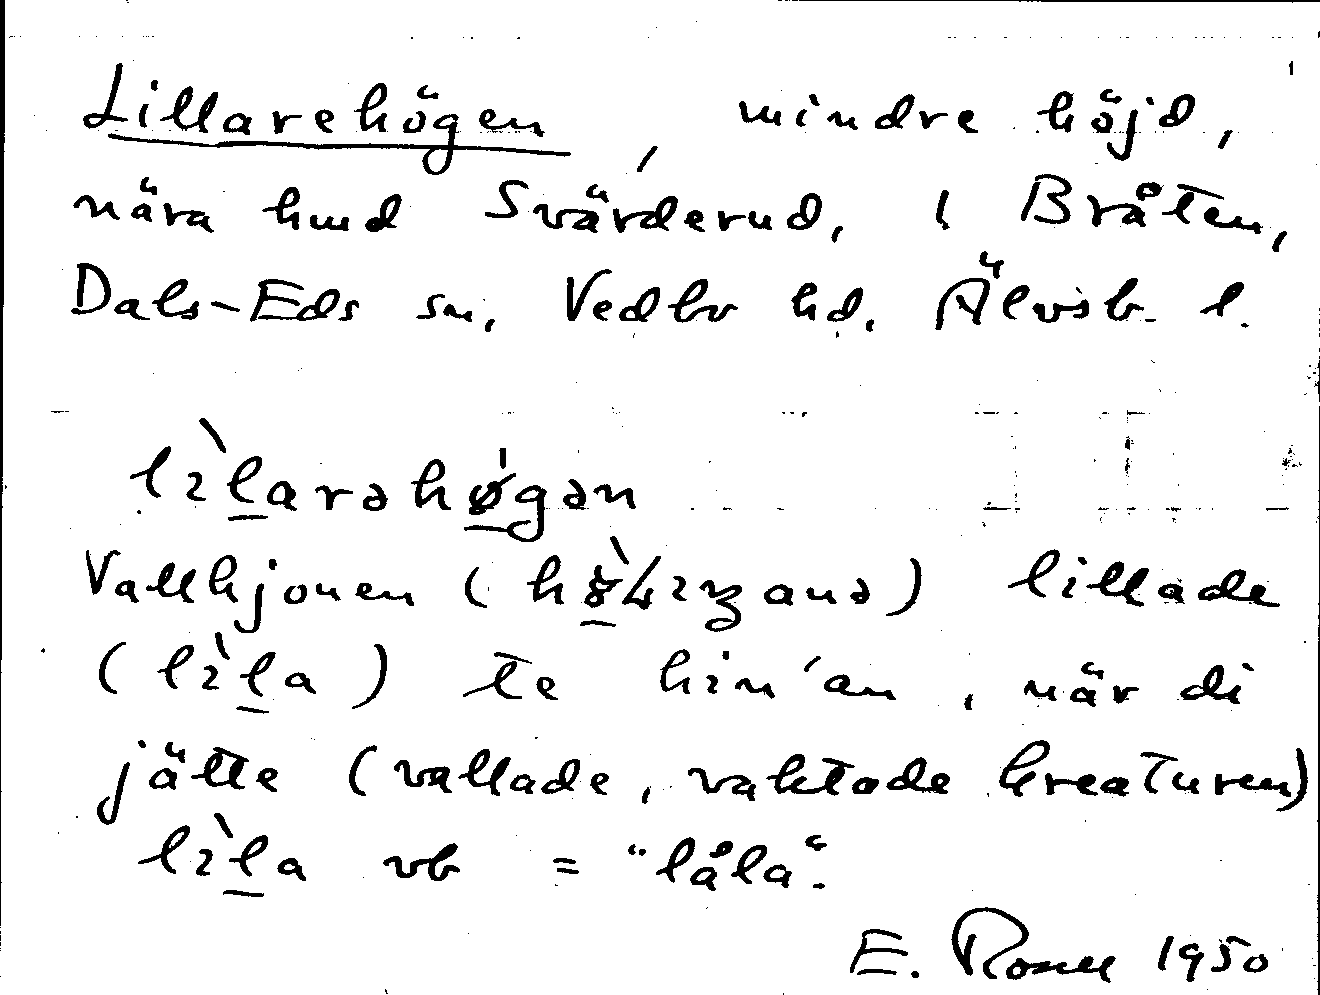 Lillarehögen, mindre höjd,
nära hmd Svärderud, i Bråten,
Dals-Eds sn, Vedbo hd. Älvsb. l.
lìlarəhøgən
Vallhjonen ( ) lillade
(lìla) te hin'an, när di
jätte (vallade, vaktade kreaturen)
lìla vb = "låla".
E. Rosell 1950